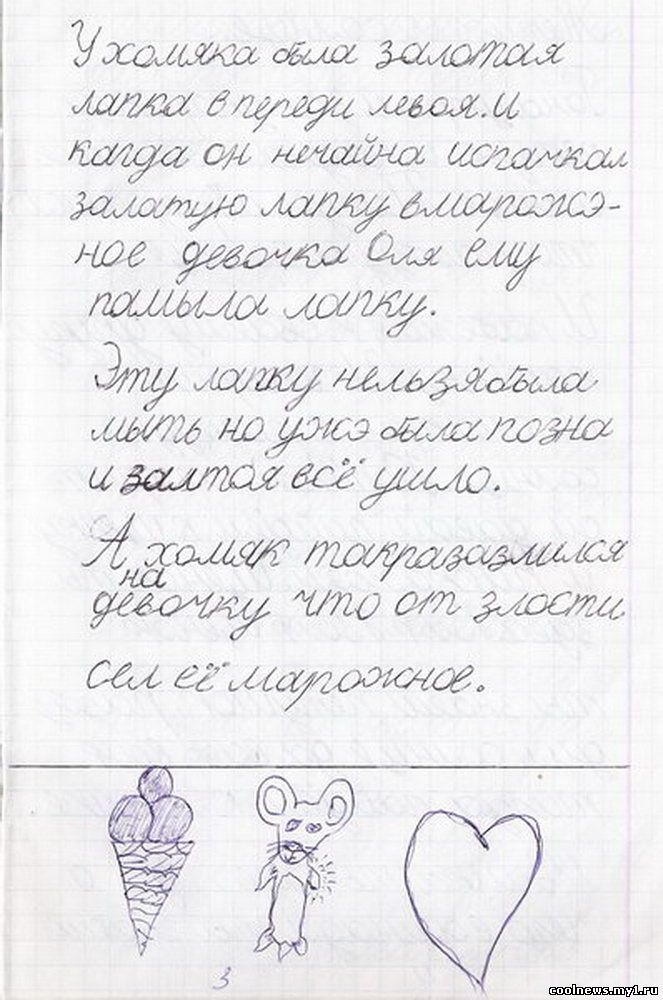 У хомяка была залотая
лапка в переди левоя. И
кагда он нечайна испачкал
залатую лапку вмарожэ-
ное девочка Оля ему
памыла лапку.
Эту лапку нельзя была
мыть но ужэ была позна
и залтоя всё ушло.
А хомяк такразазлился
на
девочку что от злости
сел её марожное.
3
coolnews.my1.ru